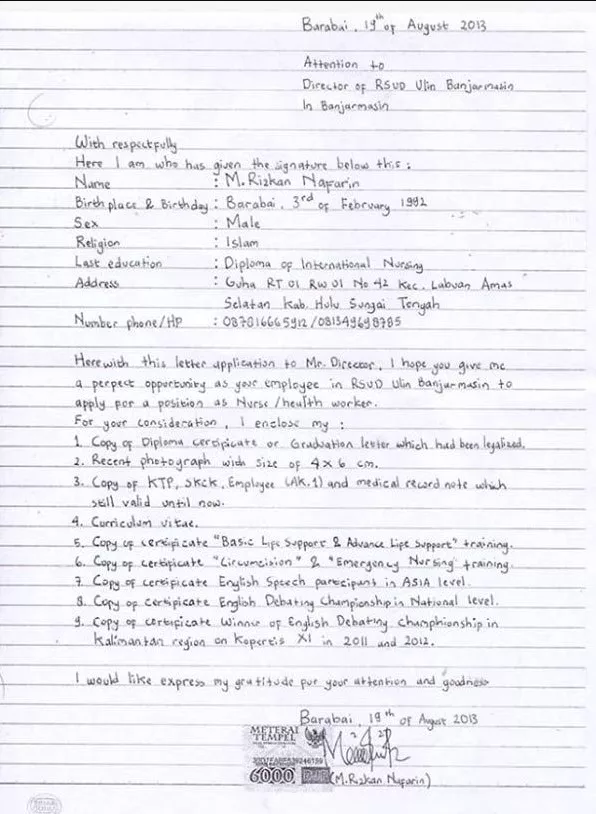 Barabai, 19th of August 2013
Attention to
Director of RSUD Ulin Banjarmasin
In Banjarmasin
With respectfully
Here I am who has given the signature below this :
Name : M. Rizkan Naparin
Birthplace & Birthday : Barabai, 3rd of February 1992
Sex : Male
Religion : Islam
Last education : Diploma of International Nursing
Address : Guha RT 01 RW 01 No 42 Kec. Labuan Amas
Selatan Kab. Hulu Sungai Tengah
Number phone/HP : 087816665912 / 081349698785
Herewith this letter application to Mr. Director, I hope you give me
a perpect opportunity as your employee in RSUD Ulin Banjarmasin to
apply for a position as Nurse / health worker.
For your consideration, I enclose my :
1. Copy of Diploma certificate or Graduation letter which had been legalized.
2. Recent photograph with size of 4 x 6 cm.
3. Copy of KTP, SKCK, Employee (AK.1) and medical record note which
still valid until now.
4. Curriculum vitae.
5. Copy of certificate "Basic Life Support & Advance Life Support" training.
6. Copy of certificate "Circumcision" & "Emergency Nursing" training.
7. Copy of certificate English Speech participant in ASIA level.
8. Copy of certificate English Debating Championship in National level.
9. Copy of certificate Winner of English Debating Champhionship in
Kalimantan region on Kopertis XI in 2011 and 2012.
I would like express my gratitude for your attention and goodness
Barabai, 19th of August 2013
METERAI
TEMPEL
6000
(M. Rizkan Naparin)